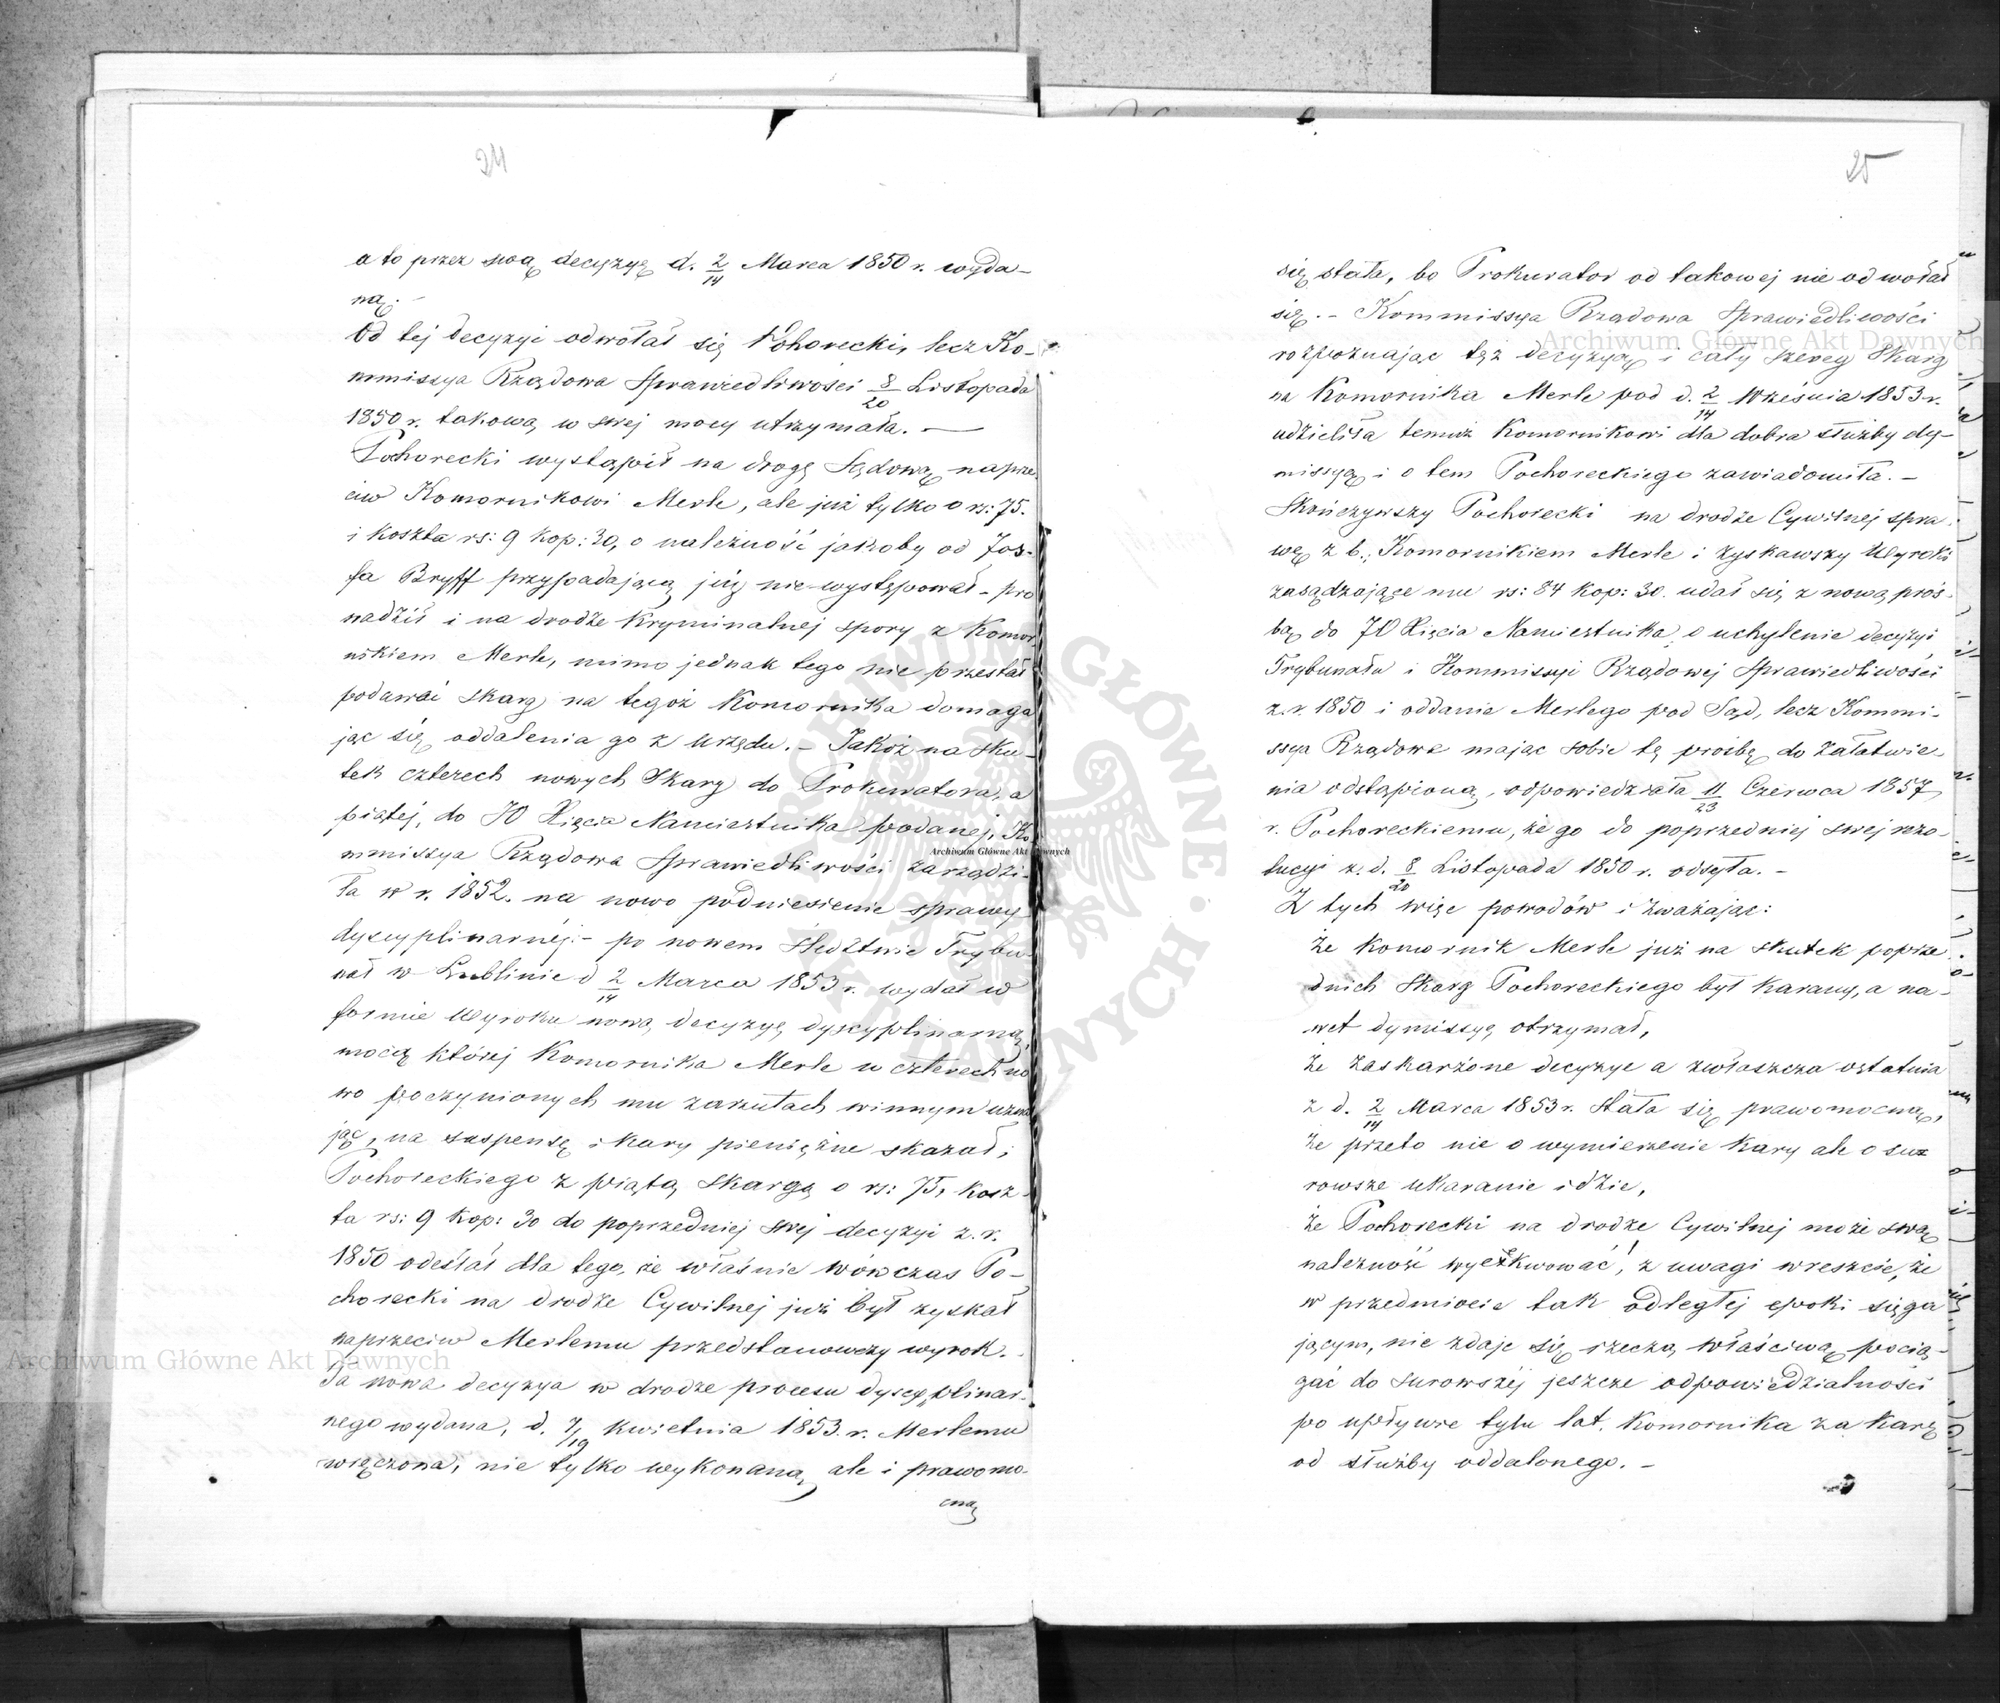 24
a to przez swą decyzyę d. 2/14 Marca 1850 r. wyda-
ną. -
Od tej decyzyi odwołał się Pohorecki, lecz Ko-
mmissya Rządowa Sprawiedliwości 8/20 Listopada
1850 r. takową w swej mocy utrzymała. —
Pochorecki wystąpił na drogę Sądową naprze-
ciw Komornikowi Merle, ale już tylko o rs: 75.
i koszta rs: 9 kop: 30, o należność jakoby od Joz-
fa Bryff przypadającą już nie występował - pro
wadził i na drodze Kryminalnej spory z Komor-
nikiem Merle, mimo jednak tego nie przestał
podawać skarg na tegoż Komornika domaga
jąc się oddalenia go z Urzędu. - Jakoż na sku-
tek czterech nowych Skarg do Prokuratora, a
piątej, do JO Xięcia Namiestnika podanej, Ko
mmissya Rządowa Sprawiedliwości zarządzi-
ła w r. 1852. na nowo podniesienie sprawy
dyscyplinarnéj: - po nowem śledztwie Trybu-
nał w Lublinie d 2/14 Marca 1853 r. wydał w
formie Wyroku nową decyzyę dyscyplinarną,
mocą której Komornika Merle w czterech no
wo poczynionych mu zarzutach winnym uzna
jąc, na suspensę i kary pieniężne skazał;
Pochoreckiego z piątą skargą o rs: 75, kosz-
ta rs: 9 kop: 30 do poprzedniej swej decyzyi z. r.
1850 odesłał dla tego, że właśnie wówczas Po-
chorecki na drodze Cywilnej już był zyskał
naprzeciw Merlemu przedstanowczy wyrok.
Ta nowa decyzya w drodze procesu dyscyplinar-
nego wydana, d. 7/19 Kwietnia 1853. r. Merlemu
wręczona, nie tylko wykonaną, ale i prawomo-
cną
25
się stała, bo Prokurator od takowej nie odwołał
się. - Kommissya Rządowa Sprawiedliwości
rozpoznając tęż decyzyą i cały szereg skarg
na Komornika Merle pod d. 2/14 Września 1853 r.
udzieliła temuż Komornikowi dla dobra służby dy-
missyą i o tem Pochoreckiego zawiadomiła. -
Skończywszy Pochorecki na drodze Cywilnej spra-
wę z b. Komornikiem Merle i zyskawszy Wyroki
zasądzające mu rs: 84 kop: 30. udał się z nową proś-
bą do JO Xięcia Namiestnika, o uchylenie decyzyi
Trybunału i Kommissyi Rządowej Sprawiedliwości
z. r. 1850 i oddanie Merlego pod Sąd, lecz Kommi-
ssya Rządowa mając sobie tę prośbę do załatwie
nia odstąpioną, odpowiedziała 11/23 Czerwca 1857
r. Pochoreckiemu, że go do poprzedniej swej rezo-
lucyi z. d. 8/20 Listopada 1850 r. odsyła. -
Z tych więc powodów i zważając:
że Komornik Merle już na skutek poprze
dnich Skarg Pochoreckiego był karany, a na-
wet dymissyę otrzymał,
że zaskarżone decyzye a zwłaszcza ostatnia
z d. 2/14 Marca 1853 r. stała się prawomocną,
że przeto nie o wymierzenie kary ale o su
rowsze ukaranie idzie,
że Pochorecki na drodze Cywilnej może swą
należność wyexekwować, z uwagi wreszcie, że
w przedmiocie tak odległej epoki sięga
jącym, nie zdaje się rzeczą właściwą pocią-
gać do surowszéj jeszcze odpowiedzialności
po upływie tylu lat, Komornika za karę
od służby oddalonego. -
Archiwum Główne Akt Dawnych
Archiwum Główne Akt Dawnych
Archiwum Główne Akt Dawnych
ARCHIWUM GŁÓWNE AKT DAWNYCH